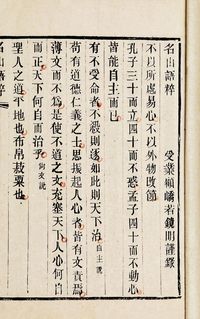 名山語粹 受業 嶠若鏡明謹錄
不以所處易心不以外物改節
孔子三十而立四十而不惑孟子四十而不動心
皆能自主而已
有不受命者不殺則逐如此則天下治 自主說
苟有道德仁義之士思振起人心者皆有文責焉
薄文而不為是使不道之文充塞天下人心何自
而正天下何自而治乎 文說
聖人之道平地也布帛菽粟也
名山語粹